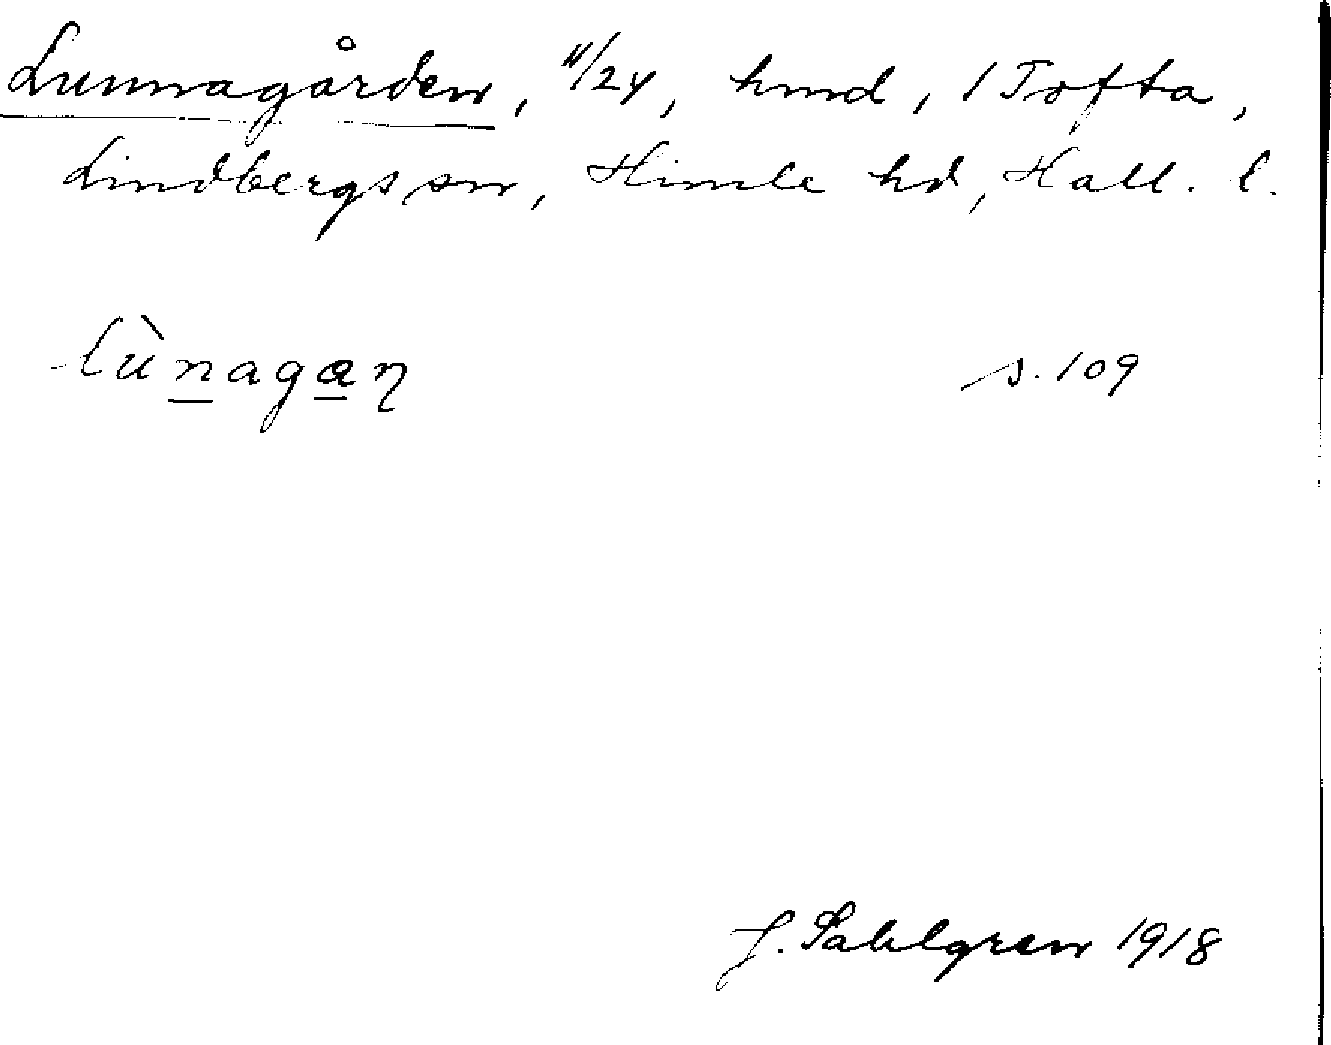 Lunnagården, 11/24, hmd, 1 Tofta,
Lindbergs sn, Himle hd, Hall. l.
lùnagaꞃ s. 109
J. Sahlgren 1918